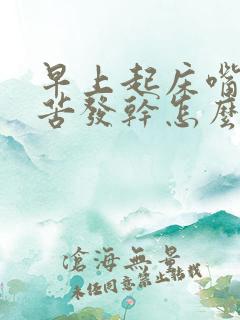 早上起床嘴
苦發幹怎麼
滄海無景
未經同意禁止轉載